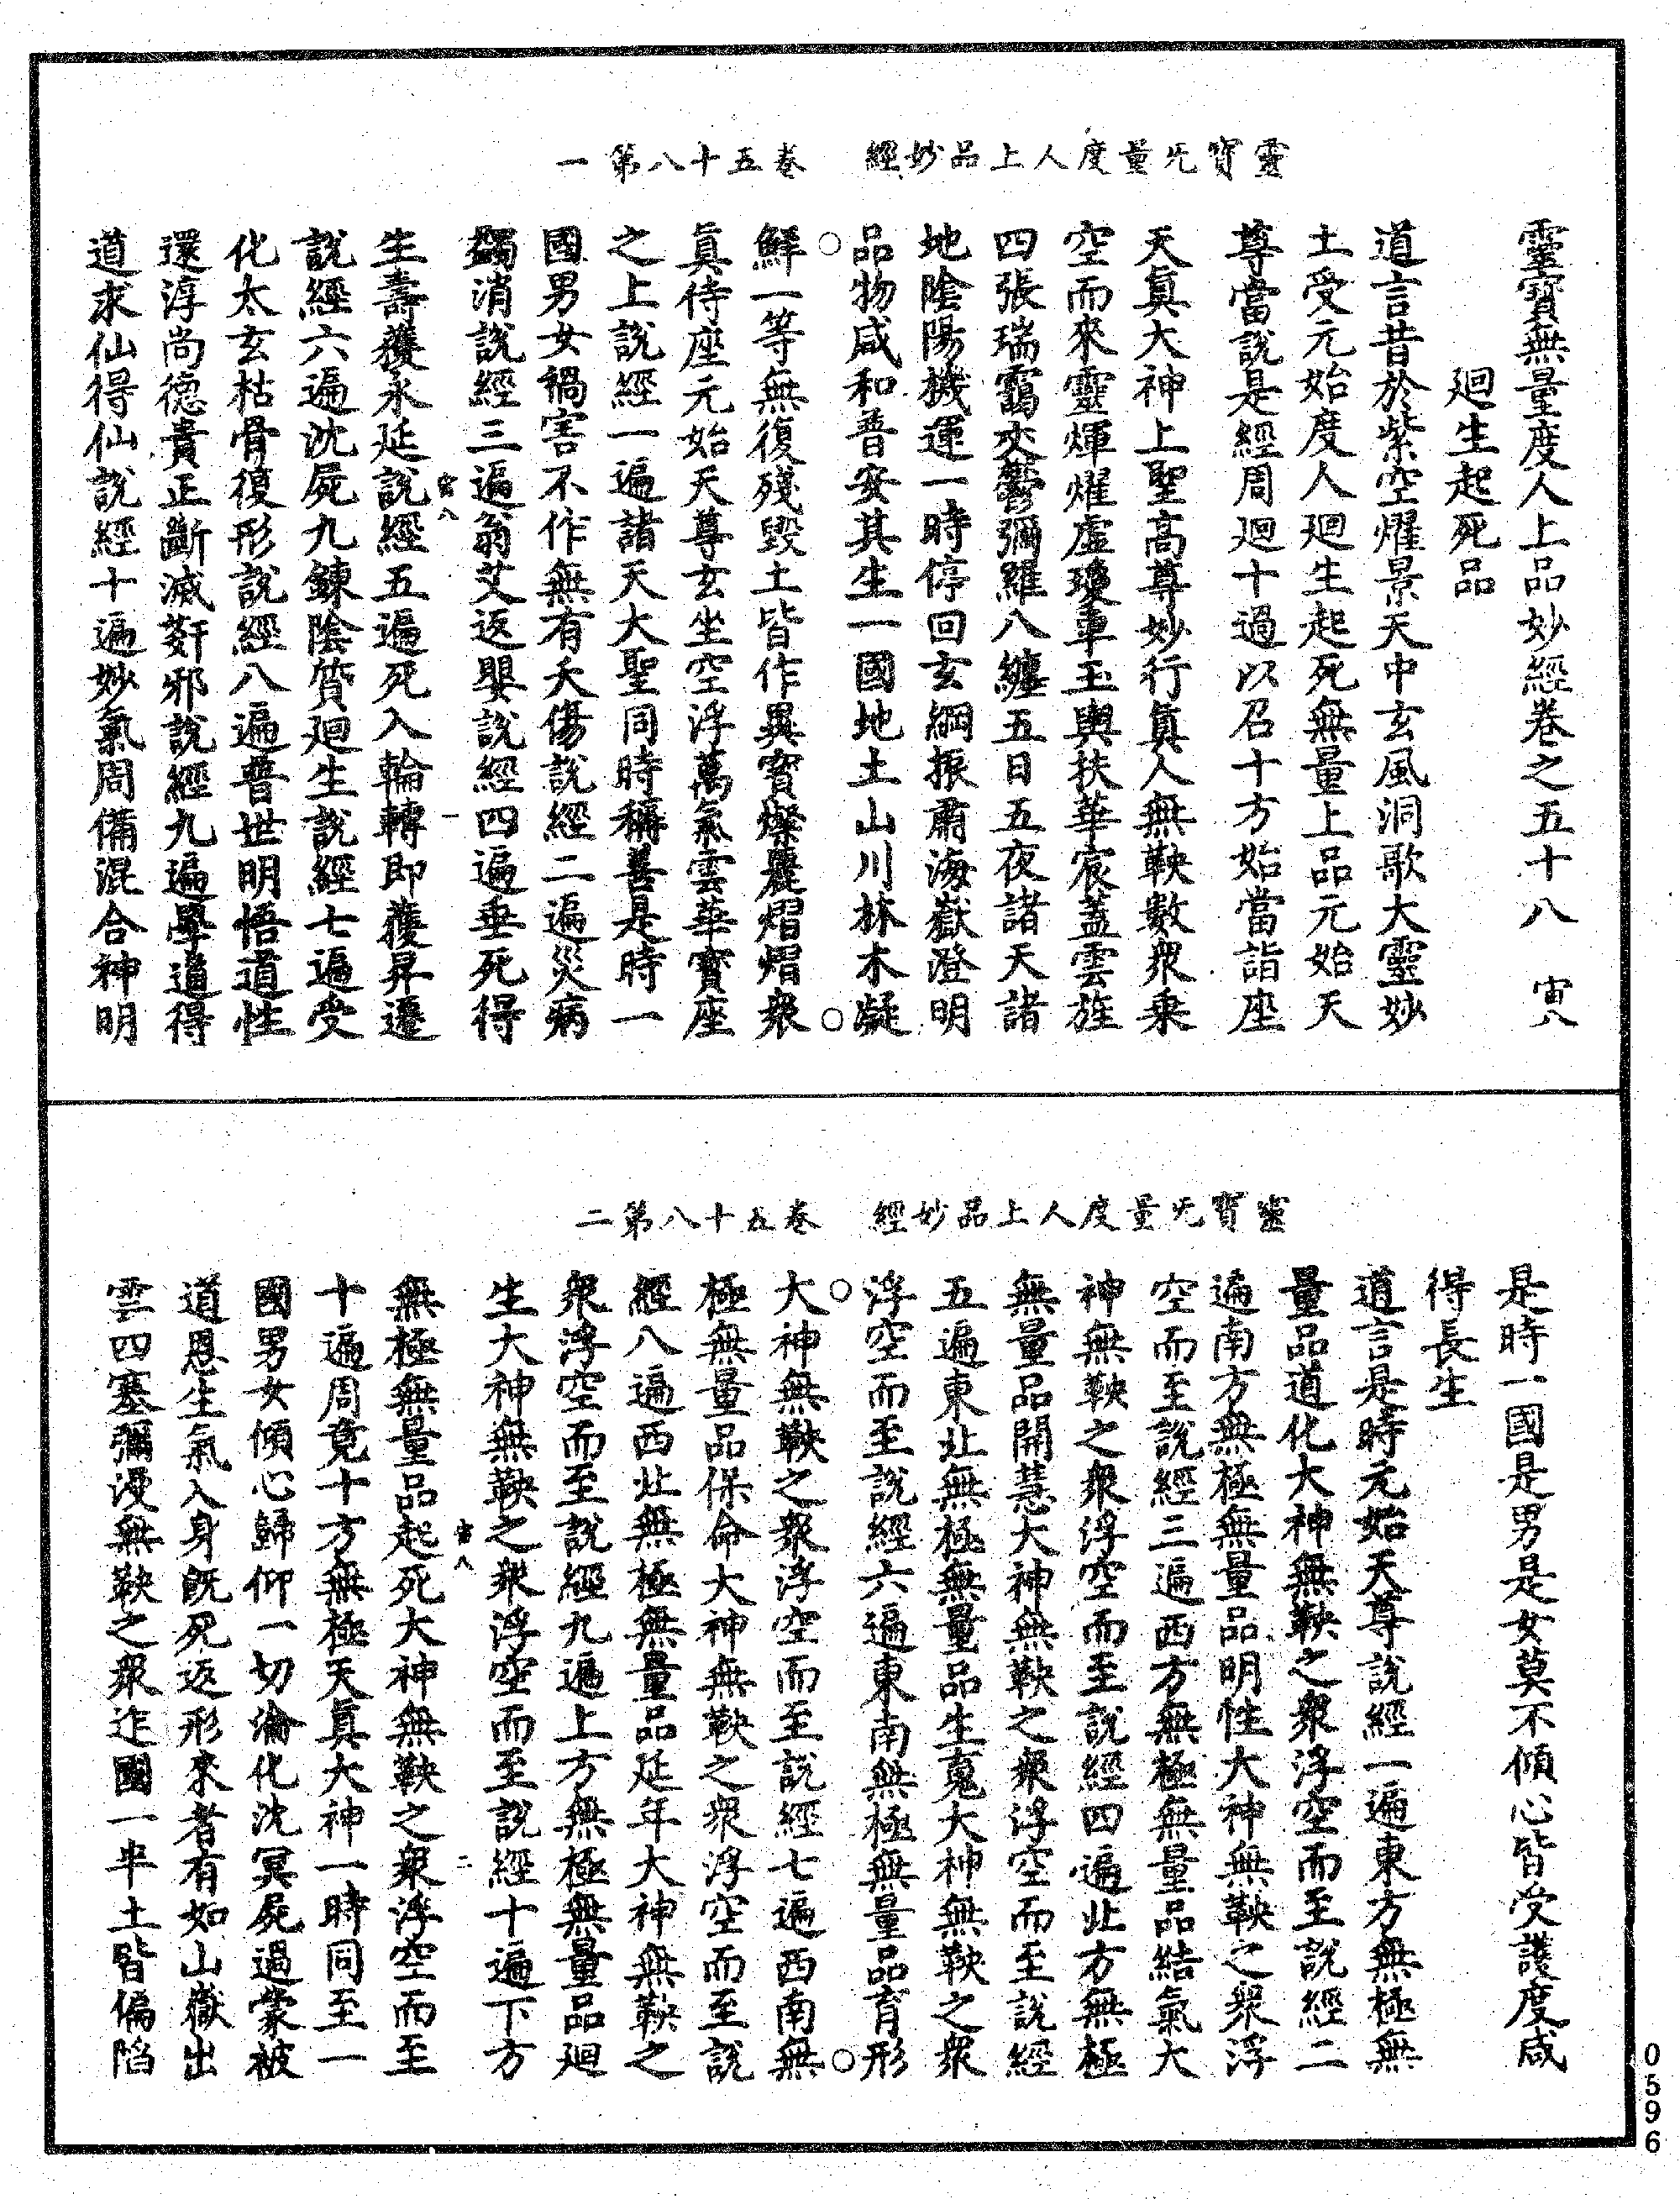 靈寶无量度人上品妙經　卷五十八第一
靈寶無量度人上品妙經卷之五十八　寅八
廻生起死品
道言昔於紫空燿景天中玄風洞歌大靈妙
土受元始度人廻生起死無量上品元始天
尊當說是經周廻十過以召十方始當詣座
天真大神上聖高尊妙行真人無鞅數衆乘
空而來靈煇燿虛瓊軬玉輿扶華宸蓋雲旌
四張瑞靄夾鬱彌羅八纏五日五夜諸天諸
地陰陽機運一時停回玄綱振肅海嶽澄明
品物咸和普安其生一國地土山川林木凝
鮮一等無復殘毀土皆作異寶燦麗熠熠衆
真侍座元始天尊玄坐空浮萬氣雲華寶座
之上說經一遍諸天大聖同時稱善是時一
國男女禍害不作無有夭傷說經二遍災病
蠲消說經三遍翁艾返嬰說經四遍垂死得
生壽獲永延說經五遍死入輪轉即獲昇遷
寅八　一
說經六遍沈屍九鍊陰質廻生說經七遍受
化太玄枯骨復形說經八遍普世明悟道性
還淳尚德貴正斷滅姧邪說經九遍學道得
道求仙得仙說經十遍妙氣周備混合神明
靈寶无量度人上品妙經　卷五十八第二
是時一國是男是女莫不傾心皆受護度咸
得長生
道言是時元始天尊說經一遍東方無極無
量品道化大神無鞅之衆浮空而至說經二
遍南方無極無量品明性大神無鞅之衆浮
空而至說經三遍西方無極無量品結氣大
神無鞅之衆浮空而至說經四遍北方無極
無量品開慧大神無鞅之衆浮空而至說經
五遍東北無極無量品生䰟大神無鞅之衆
浮空而至說經六遍東南無極無量品育形
大神無鞅之衆浮空而至說經七遍西南無
極無量品保命大神無鞅之衆浮空而至說
經八遍西北無極無量品延年大神無鞅之
衆浮空而至說經九遍上方無極無量品廻
生大神無鞅之衆浮空而至說經十遍下方
無極無量品起死大神無鞅之衆浮空而至
寅八　二
十遍周竟十方無極天真大神一時同至一
國男女傾心歸仰一切淪化沈冥屍過蒙被
道恩生氣入身旣死返形來者有如山嶽出
雲四塞彌漫無鞅之衆迮國一半土皆偏陷
0596